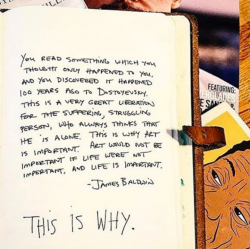 YOU READ SOMETHING WHICH YOU
THOUGHT ONLY HAPPENED TO YOU,
AND YOU DISCOVERED IT HAPPENED
100 YEARS AGO TO DOSTOYEVSKY.
THIS IS A VERY GREAT LIBERATION
FOR THE SUFFERING, STRUGGLING
PERSON, WHO ALWAYS THINKS THAT
HE IS ALONE. THIS IS WHY ART
IS IMPORTANT. ART WOULD NOT BE
IMPORTANT IF LIFE WERE NOT
IMPORTANT, AND LIFE IS IMPORTANT.
-JAMES BALDWIN
THIS IS WHY.
FEATURING: